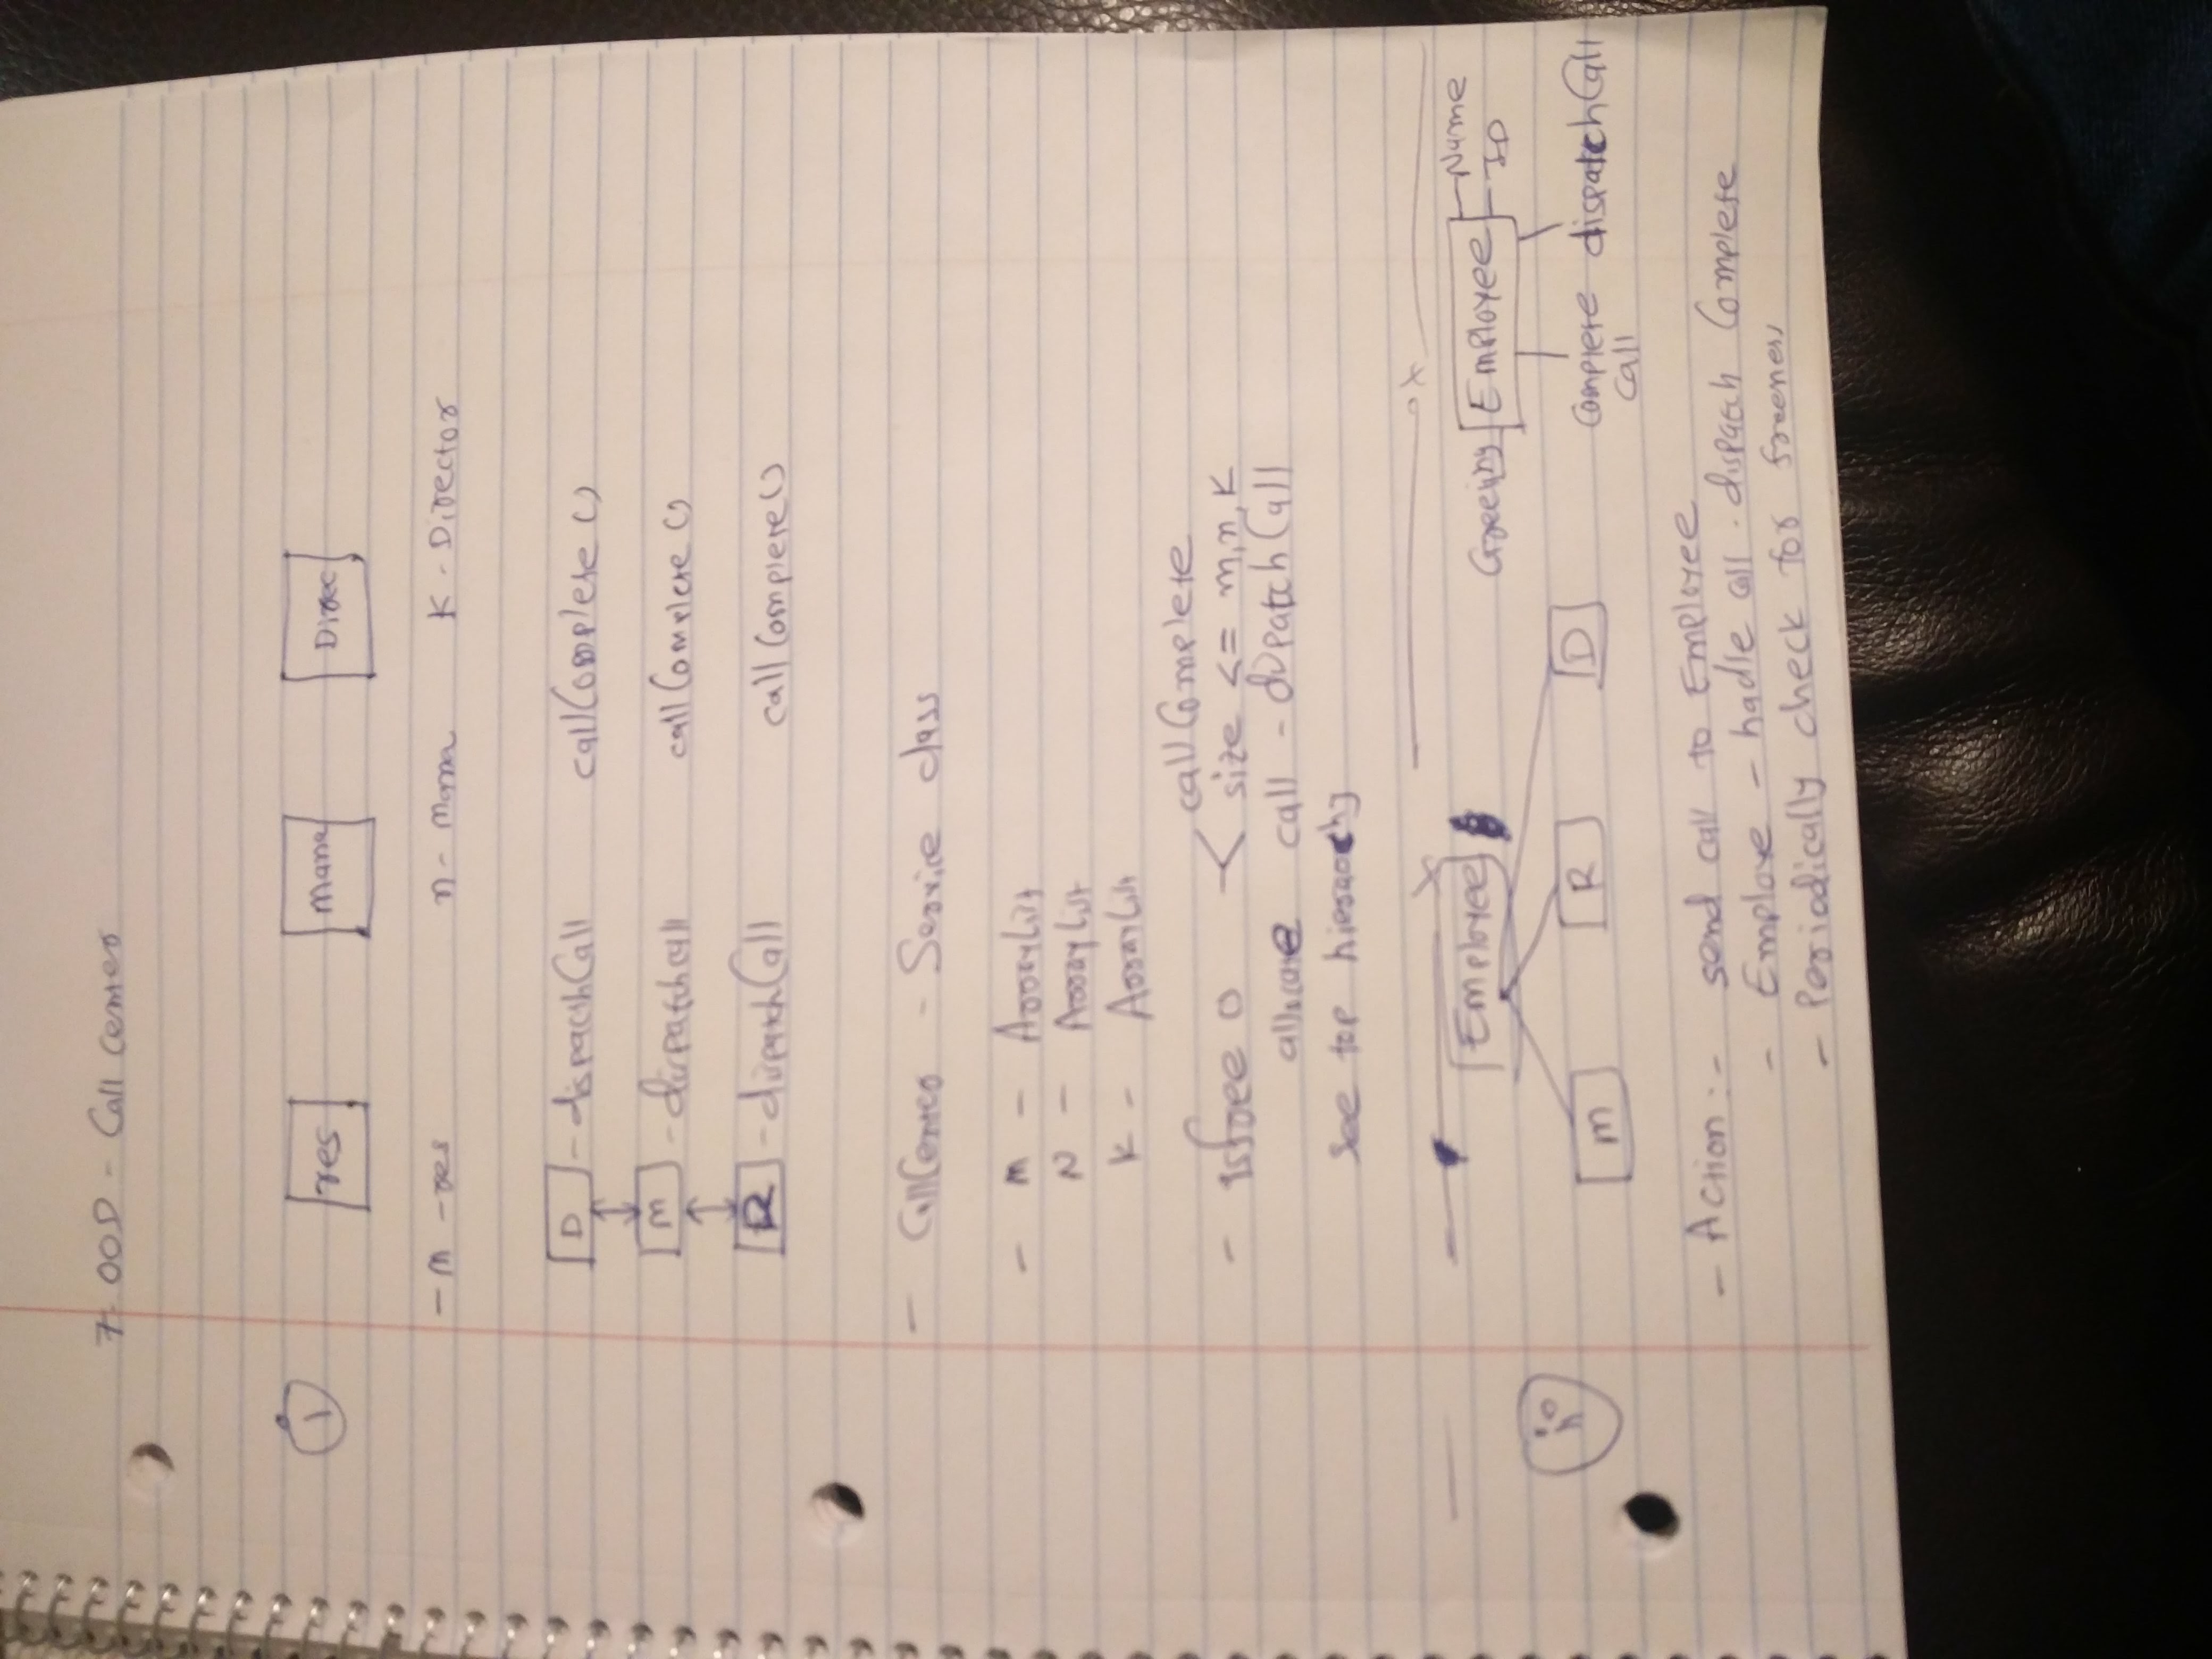 7 OOD - Call Center
1
res Mana Direc
- m - res n - mana K - Director
D - dispacthCall callComplete ()
M - dispatch call callComplete ()
R - dispatchCall callComplete()
- CallCenter - Service class
- M - ArrayList
N - ArrayList
K - ArrayList
callComplete
- isfree () < size <= m, n, K
call - dispatchCall
see top hierarchy
Employee
M R D
Greeting Employee Name
ID
Complete call
dispatchCall
ii
- Action :- send call to Employee
- Employe - hadle call . dispatch Complete
- Periodically check for freeness